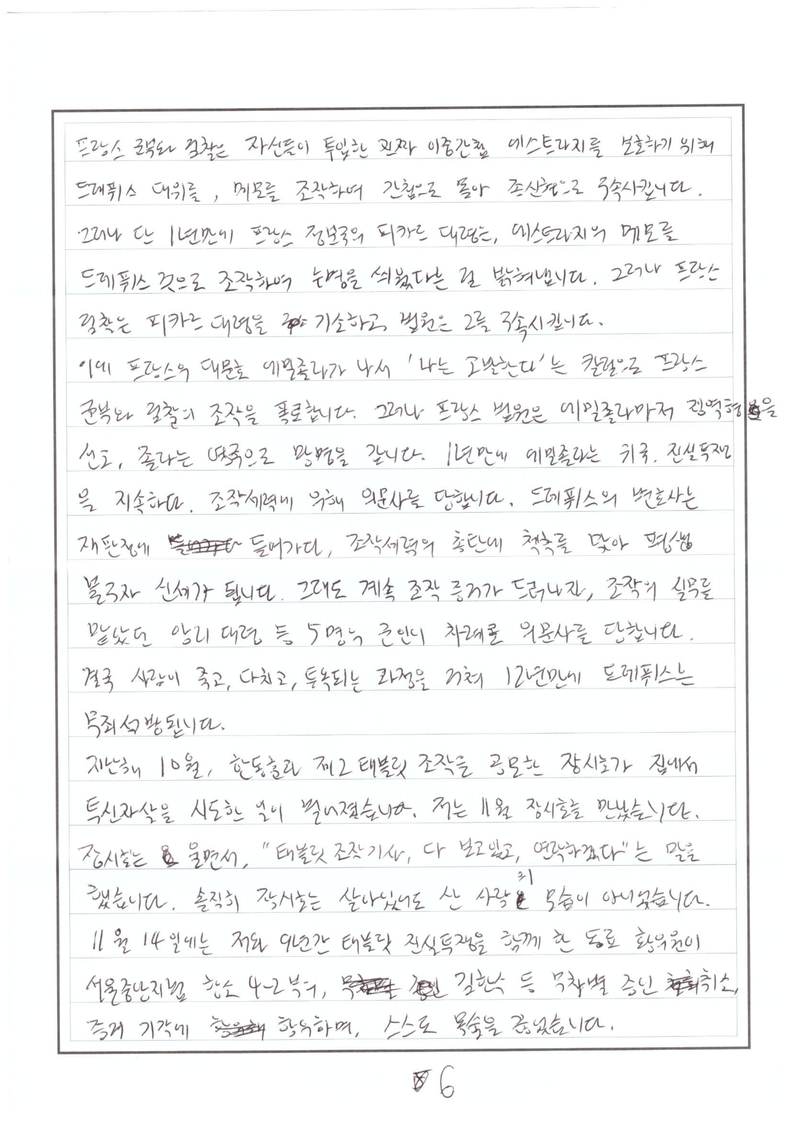 프랑스 군부와 검찰은 자신들이 투입한 진짜 이중간첩 에스트라지를 보호하기 위해
드레퓌스 대위를, 메모를 조작하여 간첩으로 몰아 종신형으로 구속시킵니다.
그러나 단 1년만에 프랑스 정보국의 피카르 대령은, 에스트라지의 메모를
드레퓌스 것으로 조작하여 누명을 씌웠다는 걸 밝혀냅니다. 그러나 프랑스
검찰은 피카르 대령을 기소하고 법원은 그를 구속시킵니다.
이에 프랑스의 대문호 에밀졸라가 나서 '나는 고발한다'는 칼럼으로 프랑스
군부와 검찰의 조작을 폭로합니다. 그러나 프랑스 법원은 에밀졸라마저 징역형을
선고, 졸라는 영국으로 망명을 갑니다. 1년만에 에밀졸라는 귀국. 진실투쟁
을 지속하다. 조작세력에 의해 의문사를 당합니다. 드레퓌스의 변호사는
재판정에 들어가다, 조작세력의 총탄에 척추를 맞아 평생
불구자 신세가 됩니다. 그래도 계속 조작 증거가 드러나자, 조작의 실무를
맡았던 앙리 대령 등 5명의 군인이 차례로 의문사를 당합니다.
결국 사람이 죽고, 다치고, 투옥되는 과정을 거쳐 12년만에 드레퓌스는
무죄석방됩니다.
지난해 10월, 한동훈과 제2태블릿 조작을 공모한 장시호가 집에서
투신자살을 시도한 일이 벌어졌습니다. 저는 11월 장시호를 만났습니다.
장시호는 울면서, "태블릿 조작기사, 다 보고있고, 연락하겠다"는 말을
했습니다. 솔직히 장시호는 살아있어도 산 사람의 목숨이 아니었습니다.
11월 14일에는 저와 9년간 태블릿 진실투쟁을 함께 한 동료 황의원이
서울중앙지법 항소 4-2부의, 김한수 등 무차별 증인 취소,
증거 기각에 항의하며, 스스로 목숨을 끊었습니다.
6